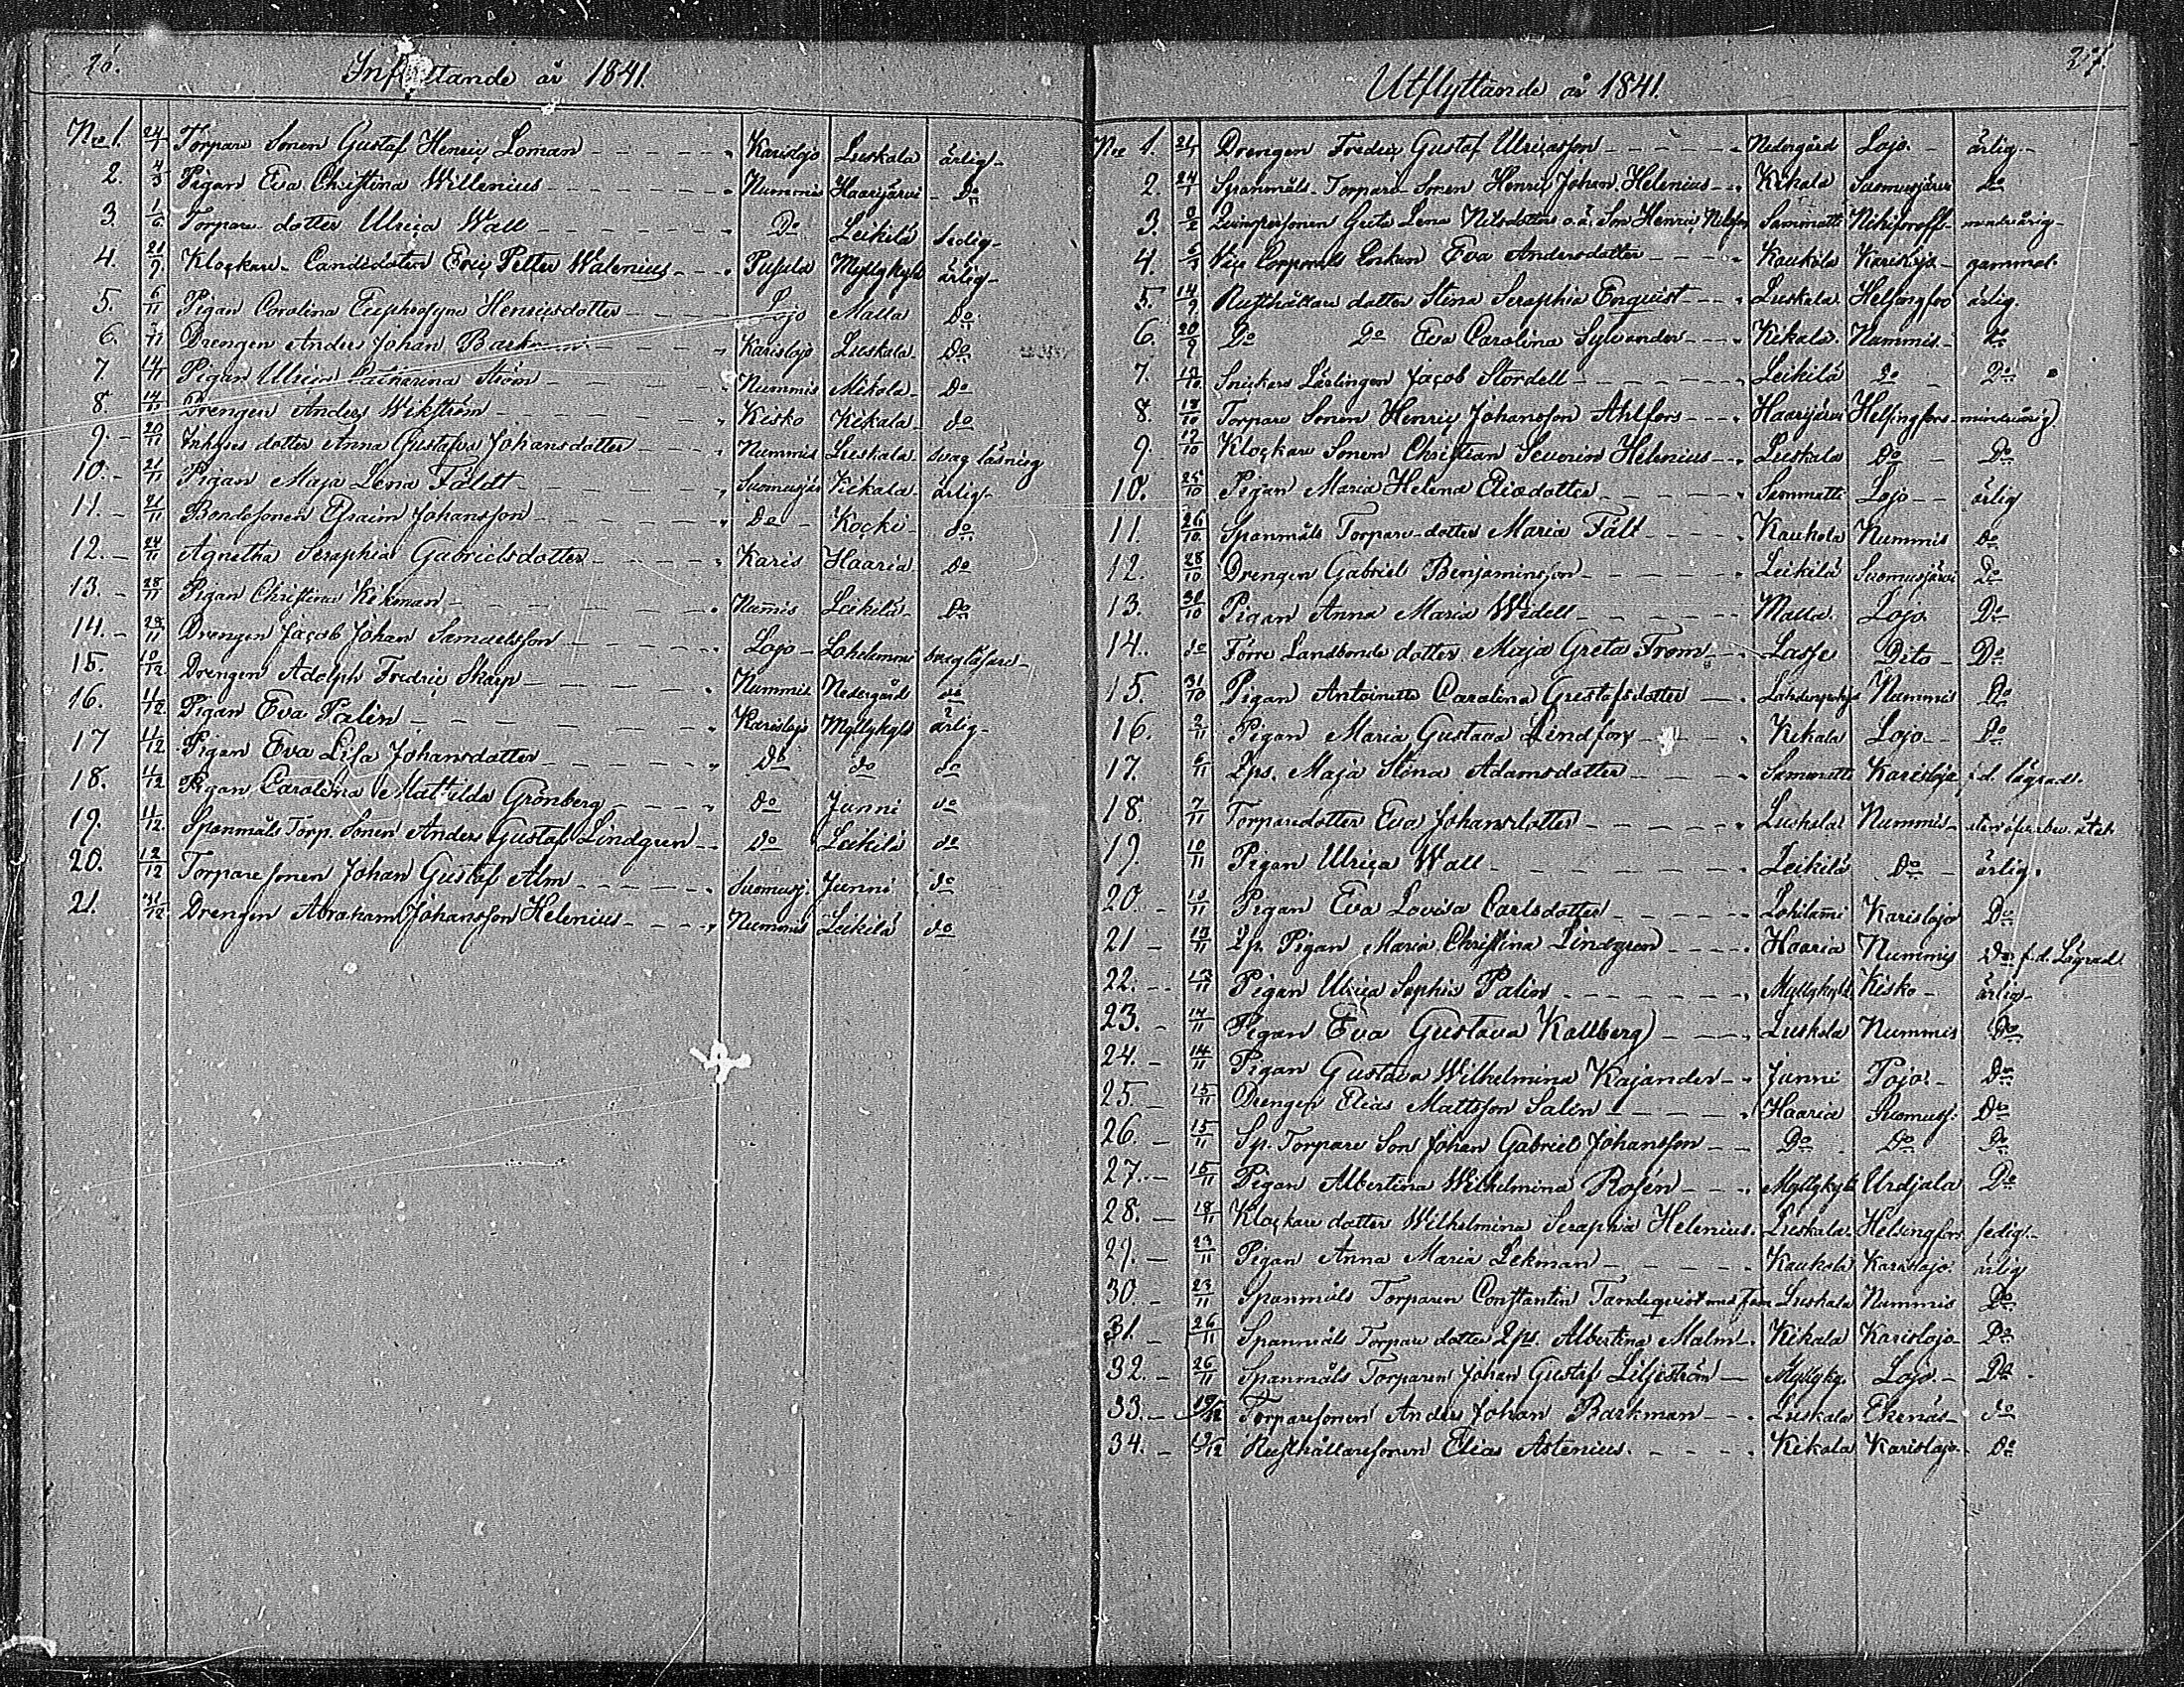 26.
Inflyttande år 1841.
No 1. 24/1 Torpare Sonen Gustaf Henric Loman Karislojo Luskala ärlig
2. 4/3 Pigan Eva Christina Willenius Nummis Haarijärvi Do
3. 1/6 Torpare dotter Ulrica Wall Do Leikilä sedig
4. 21/9 Klockare Candidaten Eric Petter Walenius Pusula Myllykylä ärlig
5. 6/11 Pigan Carolina Euphrosyne Henricsdotter Lojo Malla Do
6. Drengen Anders Johan Barkman Karislojo Luskala Do
7. Pigan Ulrica Catharina Ström Nummis Mikola Do
8. 14/11 Drengen Anders Wikström Kisko Kikala do
9. 20/11 Inhyses dotter Anna Gustafva Johansdotter Nummis Luskala svag läsning
10. 21/11 Pigan Maja Lena Fäldt Suomusjär Kikala ärlig
11. 21/11 Bondesonen Efraim Johansson Do Kocki do
12. 24/11 Agnetha Seraphia Gabrielsdotter Karis Haaria do
13. 28/11 Pigan Christina Ekman Numis Leikilä Do
14. 29/11 Drengen Jacob Johan Samuelsson Lojo Lohilammi svag läsare
15. 10/12 Drengen Adolph Fredric Skarp Nummis Nedergård do
16. 11/12 Pigan Eva Palin Karislojo Myllykylä ärlig
17 11/12 Pigan Eva Lisa Johansdotter Do do do
18. 11/12 Pigan Carolina Mathilda Grönberg do Junni do
19. 11/12 Spanmåls Torp. Sonen Anders Gustaf Lindgren do Leikilä do
20. 12/12 Torpare sonen Johan Gustaf Alm Suomusj. Junni do
21. 31/12 Drengen Abraham Johansson Helenius Nummis Leikilä do
27.
Utflyttande år 1841.
No 1. Drengen Fredric Gustaf Ulricasson Nedergård Lojo ärlig
2. 24/1 Spanmåls Torpare Sonen Henric Johan Helenius Kikala Suomusjärvi do
3. Qvinspersonen Greta Lena Nilsdotter o. ä. Son Henric Nilsson Sammatti Nikiforoffs minderårig
4. Vice Corporals Enkan Eva Andersdotter Kaukola Karislojo gammal
5. 14/9 Rusthållare dotter Stina Seraphia Enquist Luskala Helsingfors ärlig
6. 20/9 Do Do Eva Carolina Sylvander Kikala Nummis Do
7. Snickars Lärlingen Jacob Stordell Leikilä Do Do
8. 18/10 Torpare Sonen Henric Johansson Ahlfors Haarijärvi Helsingfors minderårig
9. 19/10 Klockare Sonen Christian Severin Helenius Luskala Do Do
10. 25/10 Pigan Maria Helena Ericsdotter Sammatti Lojo ärlig
11. 26/10 Spanmåls Torpare dotter Maria Fält Kaukola Nummis Do
12. 28/10 Drengen Gabriel Benjaminsson Leikilä Suomusjärvi Do
13. 30/10 Pigan Anna Maria Wedell Malla Lojo Do
14. do Förre Landbonde dotter Maja Greta From Dito Do
15. 31/10 Pigan Antoinette Carolina Gustafsdotter Nummis Do
16. 2/11 Pigan Maria Gustava Lindfors Kikala Lojo Do
17. 6/11 Qps. Maja Stina Adamsdotter Sammatti Karislojo f.d. lägrad
18. 7/11 Torparedotter Eva Johansdotter Luskala Nummis
19. 10/11 Pigan Ulrica Wall Leikilä Do ärlig
20. 13/11 Pigan Eva Lovisa Carlsdotter Lohilami Karislojo Do
21 13/11 Qp. Pigan Maria Christina Lindgren Haaria Nummis Do f.d. Lägrad
22. 13/11 Pigan Ulrica Sophia Palin Myllykylä Kisko ärlig
23. 14/11 Pigan Eva Gustava Kallberg Luskala Nummis Do
24. 14/11 Pigan Gustava Wilhelmina Kajander Junni Pojo Do
25. 15/11 Drengen Elias Mattsson Salin Haaria Suomusj. Do
26. 15/11 Sp. Torpare Son Johan Gabriel Johansson Do Do Do
27. 15/11 Pigan Albertina Wilhelmina Rosén Myllykylä Urdjala Do
28. 18/11 Klockare dotter Wilhelmina Seraphia Helenius Luskala Helsingfors sedig
29. 23/11 Pigan Anna Maria Ekman Kaukola Karislojo ärlig
30. 23/11 Spanmåls Torparen Constantin Tandequist med fam Luskala Nummis Do
31. 26/11 Spanmåls Torpare dotter Qps. Albertina Malm Kikala Karislojo Do
32. 26/11 Spanmåls Torparen Johan Gustaf Liljeström Myllyky. Lojo Do
33. 19/12 Torparesonen Anders Johan Barkman Luskala Ekenäs do
34. 19/12 Rusthållaresonen Elias Astenius Kikala Karislojo Do